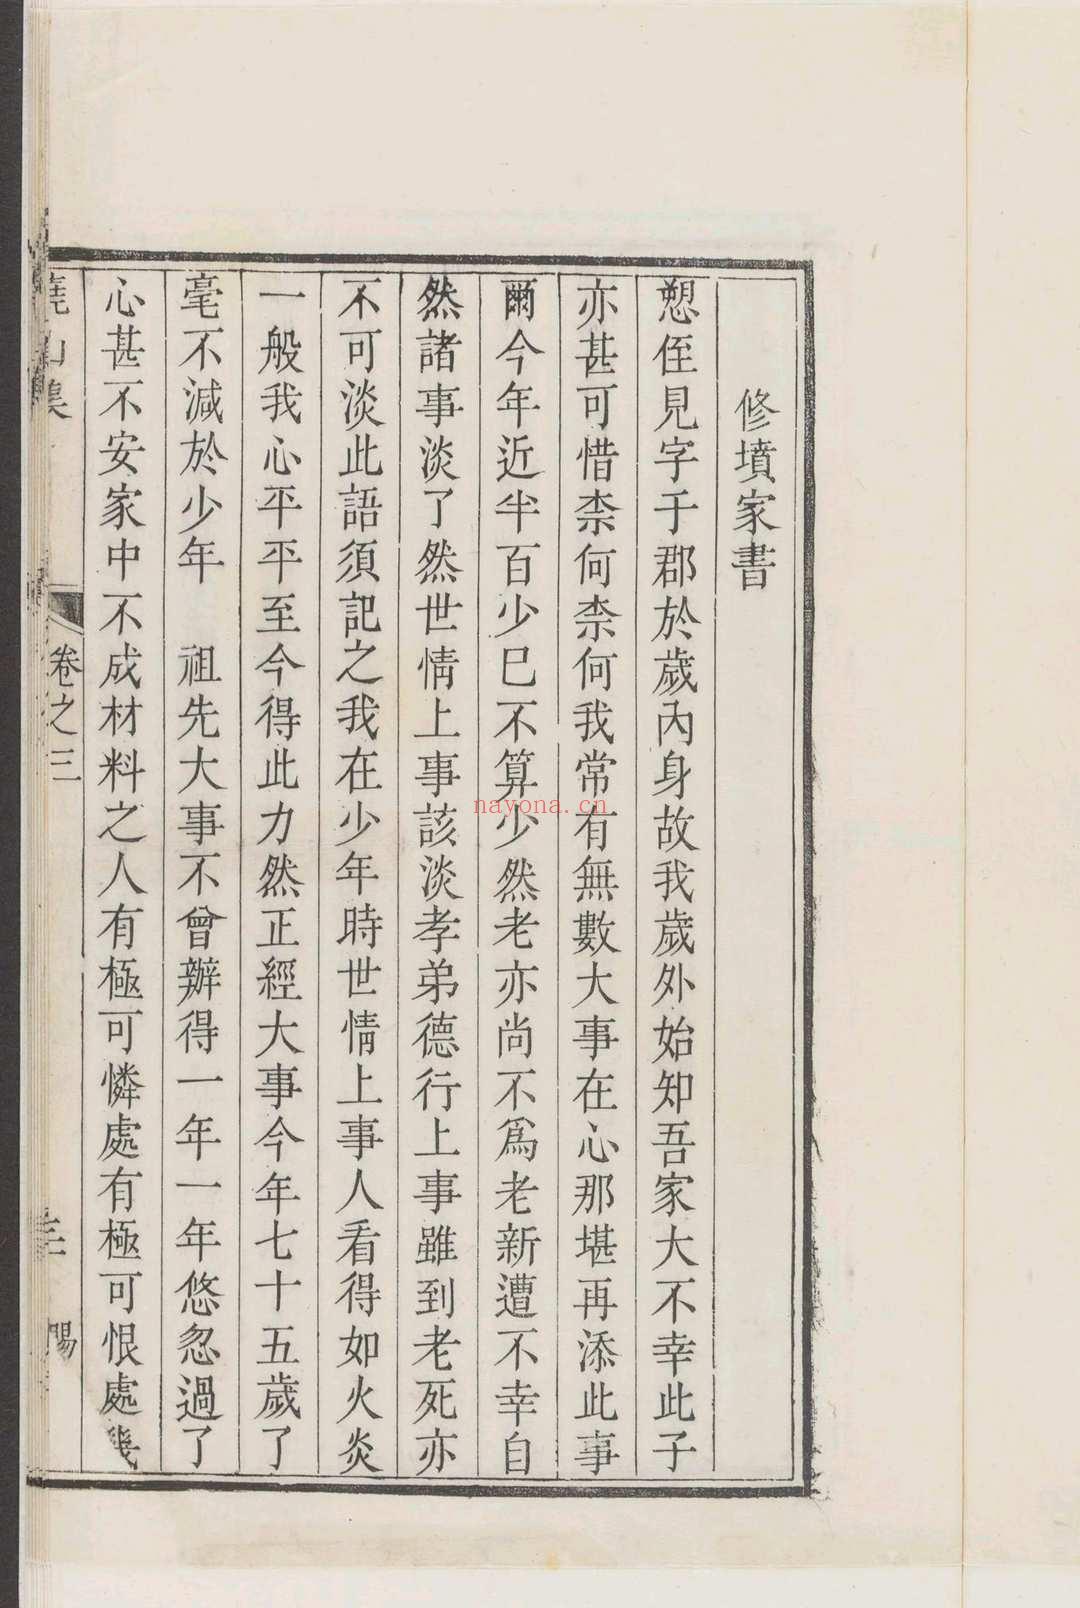 修墳家書
愬侄見字于郡於歲內身故我歲外始知吾家大不幸此子
亦甚可惜柰何柰何我常有無數大事在心那堪再添此事
爾今年近半百少已不算少然老亦尚不爲老新遭不幸自
然諸事淡了然世情上事該淡孝弟德行上事雖到老死亦
不可淡此語須記之我在少年時世情上事人看得如火炎
一般我心平平至今得此力然正經大事今年七十五歲了
毫不減於少年　祖先大事不曾辦得一年一年悠忽過了
心甚不安家中不成材料之人有極可憐處有極可恨處幾
山集
卷之三
nayona.cn